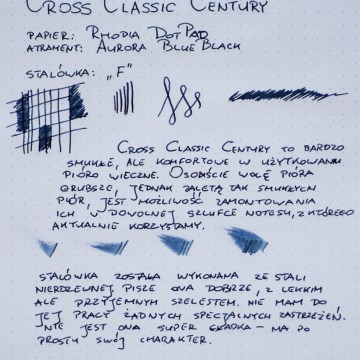 Cross Classic Century
Papier: Rhodia DotPad
Atrament: Aurora Blue Black
Stalówka: „F"
Cross Classic Century to bardzo
smukłe, ale komfortowe w użytkowaniu
pióro wieczne. Osobiście wolę pióra
grubsze, jednak zaletą tak smukłych
piór, jest możliwość zamontowania
ich w dowolnej szlufce notesu, z którego
aktualnie korzystamy.
Stalówka została wykonana ze stali
nierdzewnej. Pisze ona dobrze, z lekkim
ale przyjemnym szelestem. Nie mam do
jej pracy żadnych specjalnych zastrzeżeń.
Nie jest ona super gładka – ma po
prostu swój charakter.